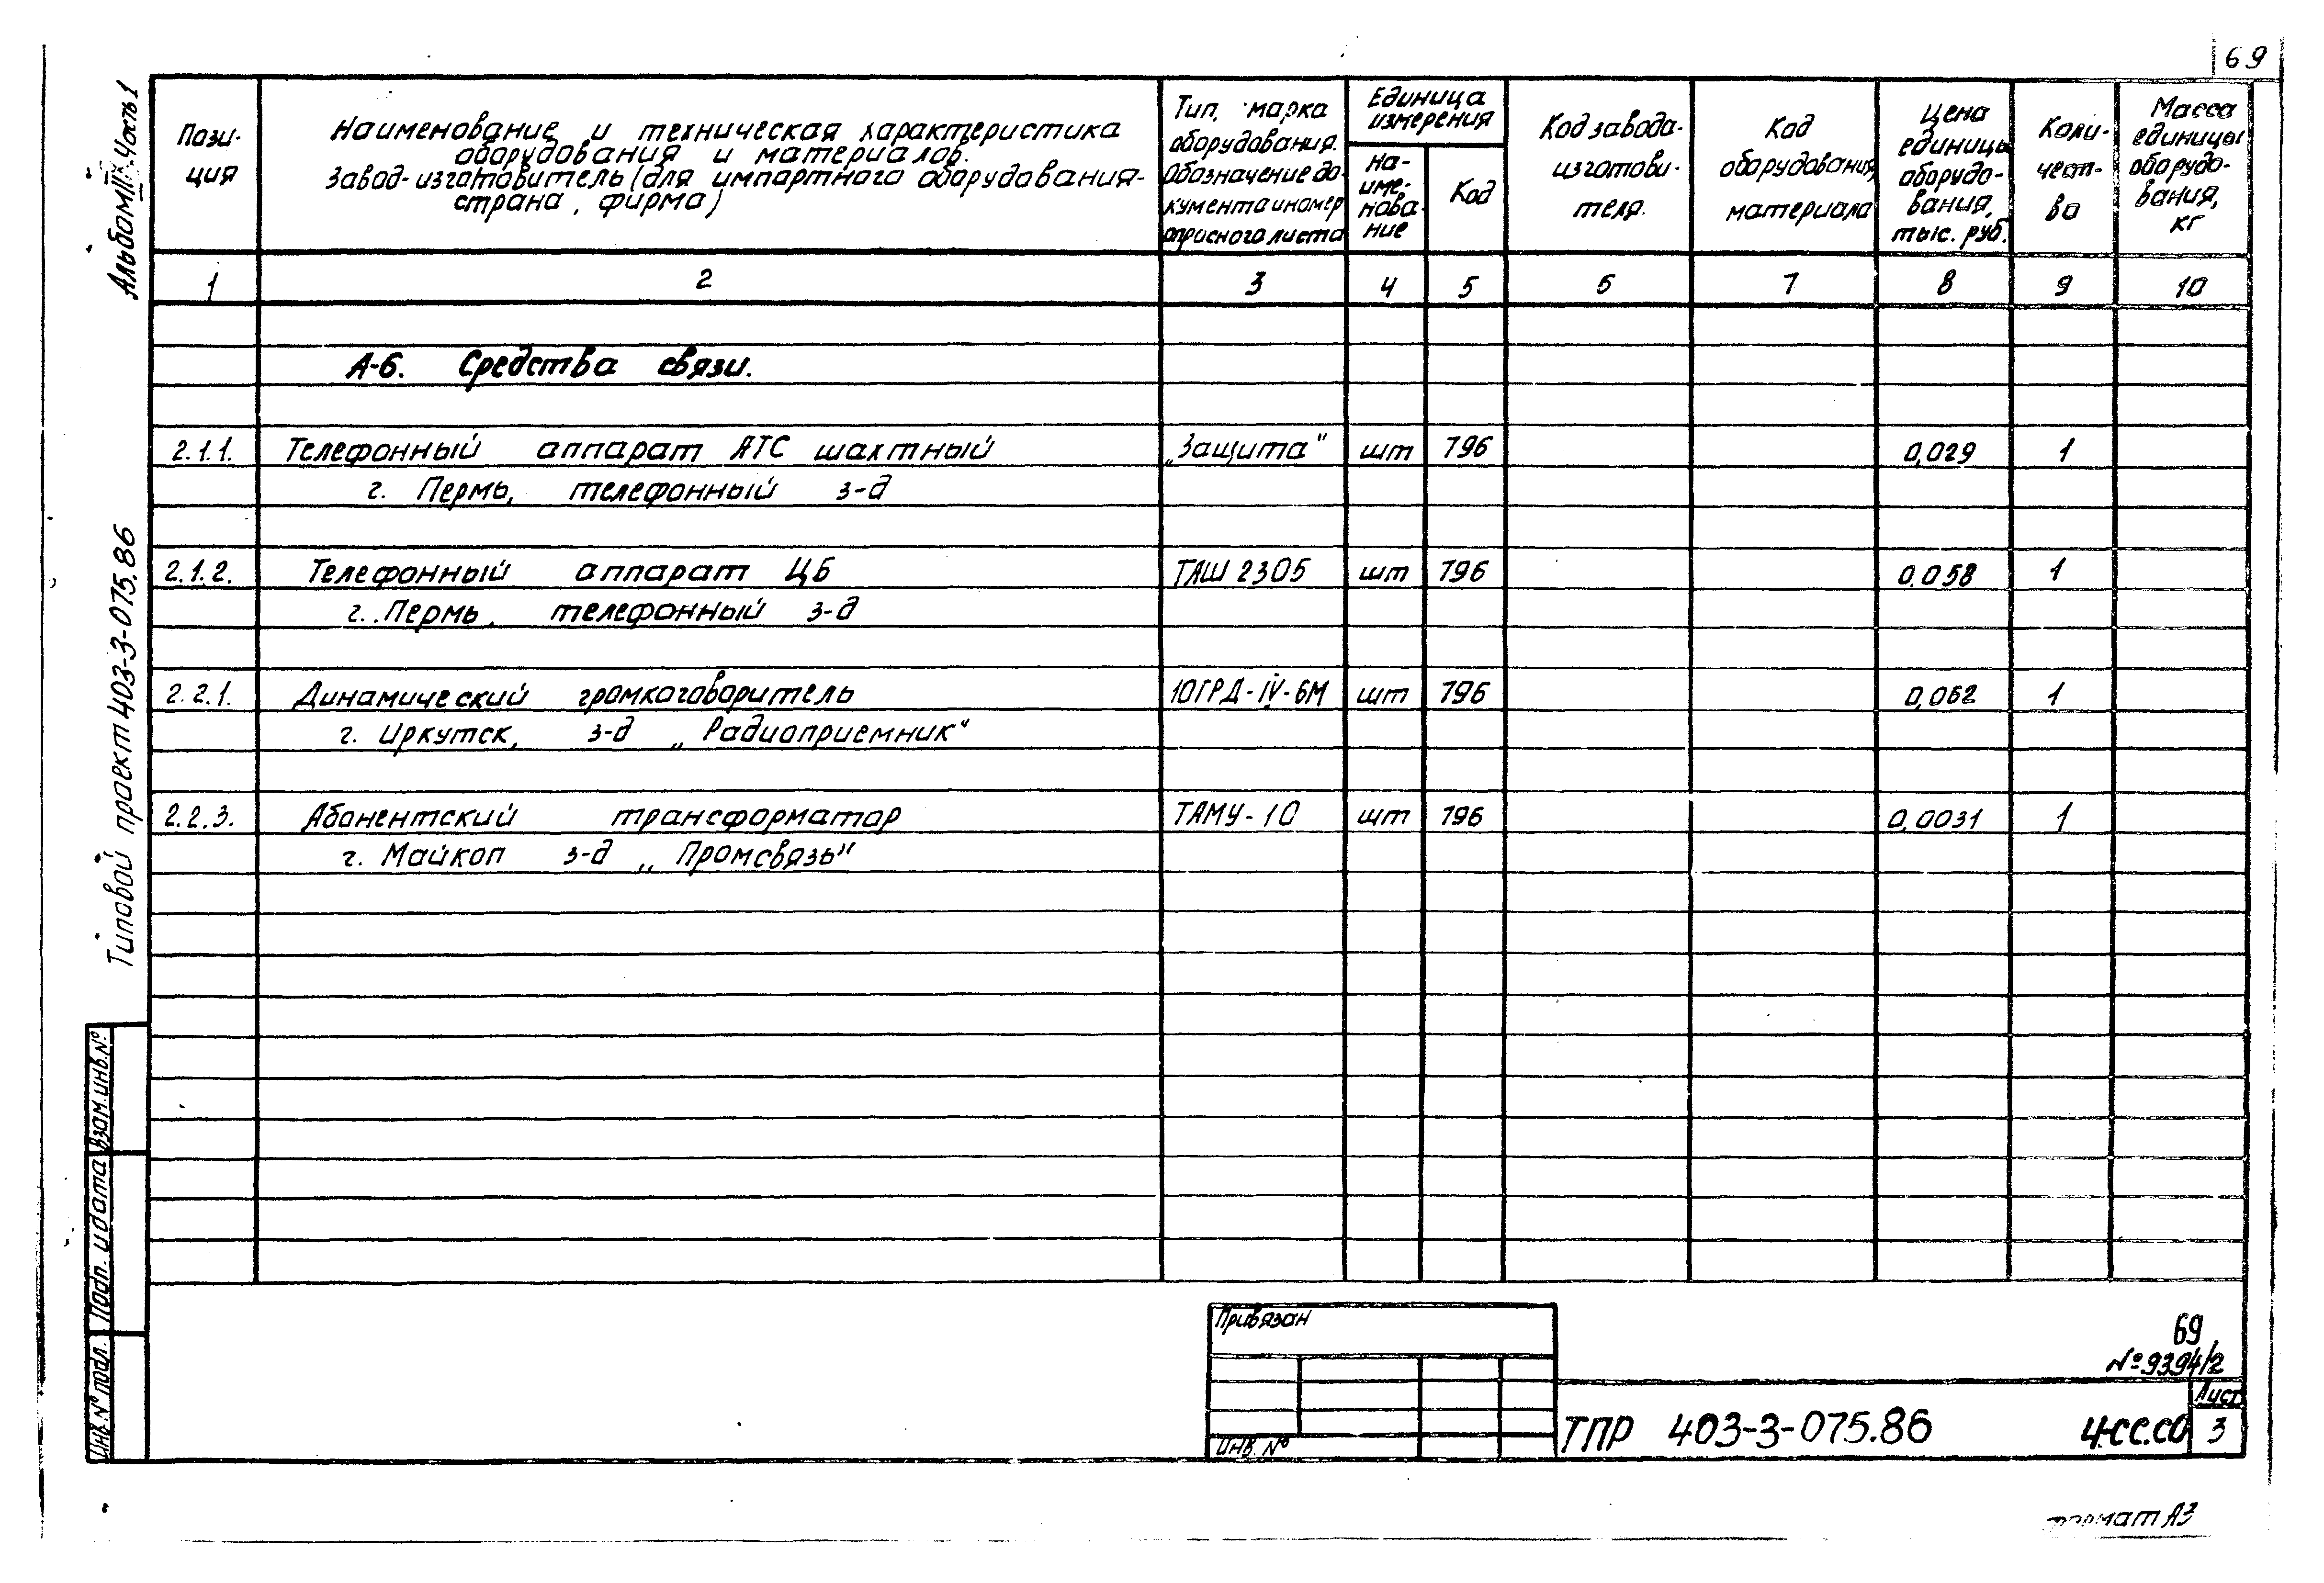 69
Альбом IV Часть 1
Типовой проект 403-3-075.86
Взам. инв. №
Подп. и дата
Инв. № подл.
Пози-
ция
Наименование и техническая характеристика
оборудования и материалов.
Завод-изготовитель (для импортного оборудования-
страна, фирма)
Тип, марка
оборудования.
Обозначение до-
кумента и номер
опросного листа
Единица
измерения
На-
име-
нова-
ние
Код
Код завода-
изготови-
теля.
Код
оборудования,
материала
Цена
единицы
оборудо-
вания,
тыс. руб.
Коли-
чест-
во
Масса
единицы
оборудо-
вания,
кг
1 2 3 4 5 6 7 8 9 10
А-6. Средства связи.
2.1.1. Телефонный аппарат АТС шахтный „Защита" шт 796 0,029 1
г. Пермь, телефонный з-д
2.1.2. Телефонный аппарат ЦБ ТАШ 2305 шт 796 0,058 1
г. Пермь, телефонный з-д
2.2.1. Динамический громкоговоритель 10ГРД-IV-6М шт 796 0,062 1
г. Иркутск, з-д „Радиоприемник"
2.2.3. Абонентский трансформатор ТАМУ-10 шт 796 0,0031 1
г. Майкоп з-д „Промсвязь"
Привязан
Инв. №
69
№9394/2
ТПР 403-3-075.86 4-СС.СО
Лист
3
формат А3